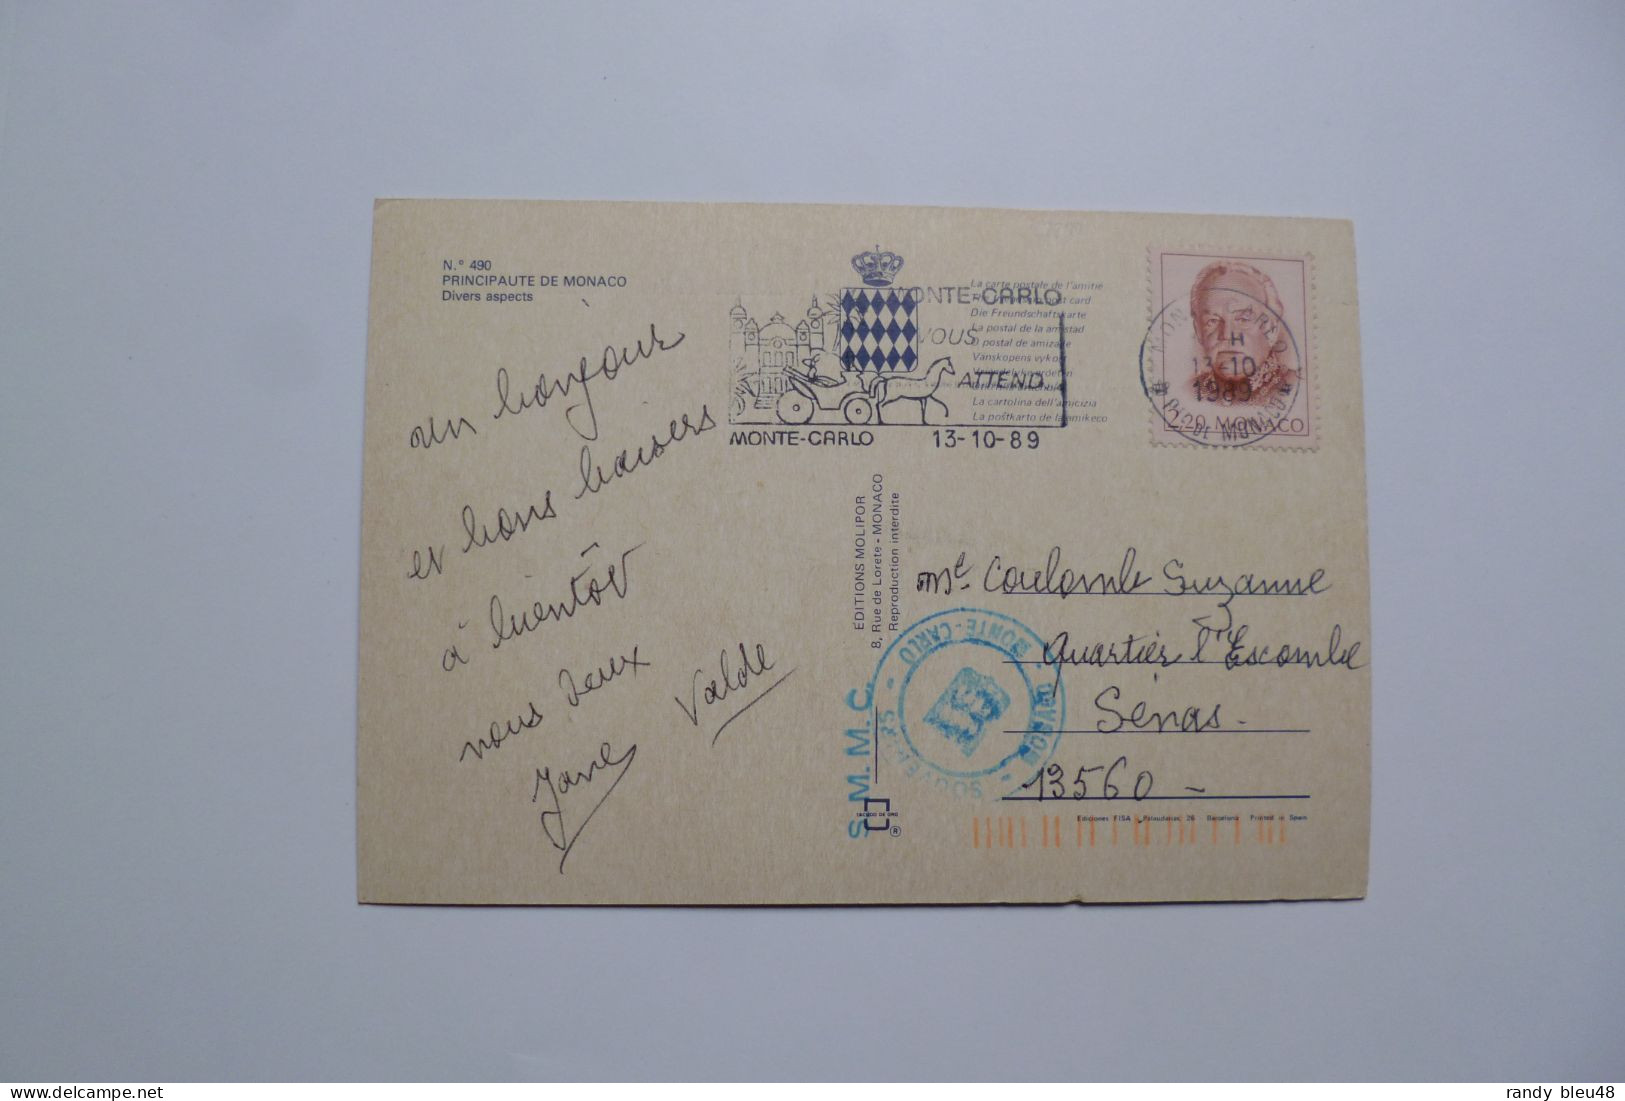 N.° 490
PRINCIPAUTE DE MONACO
Divers aspects
un bonjour
et bons baisers
à bientôt
nous deux
Valde
MONTE-CARLO
VOUS
ATTEND
MONTE-CARLO 13-10-89
La carte postale de l'amitie
post card
Die Freundschaftskarte
La postal de la amistad
postal de amizade
Vanskopens vykort
La cartolina dell'amicizia
La poŝtkarto de la amikeco
13-10
1989
2,20 MONACO
EDITIONS MOLIPOR
8, Rue de Lorete - MONACO
Reproduction interdite
Me Coulomb Suzanne
Quartier l'Escombe
Sénas.
13560 -
S.M.M.C.
SOUVENIRS - MONTE-CARLO
ESCUDO DE ORO
®
Ediciones FISA Palaudarias, 26 Barcelona Printed in Spain
randy bleu48